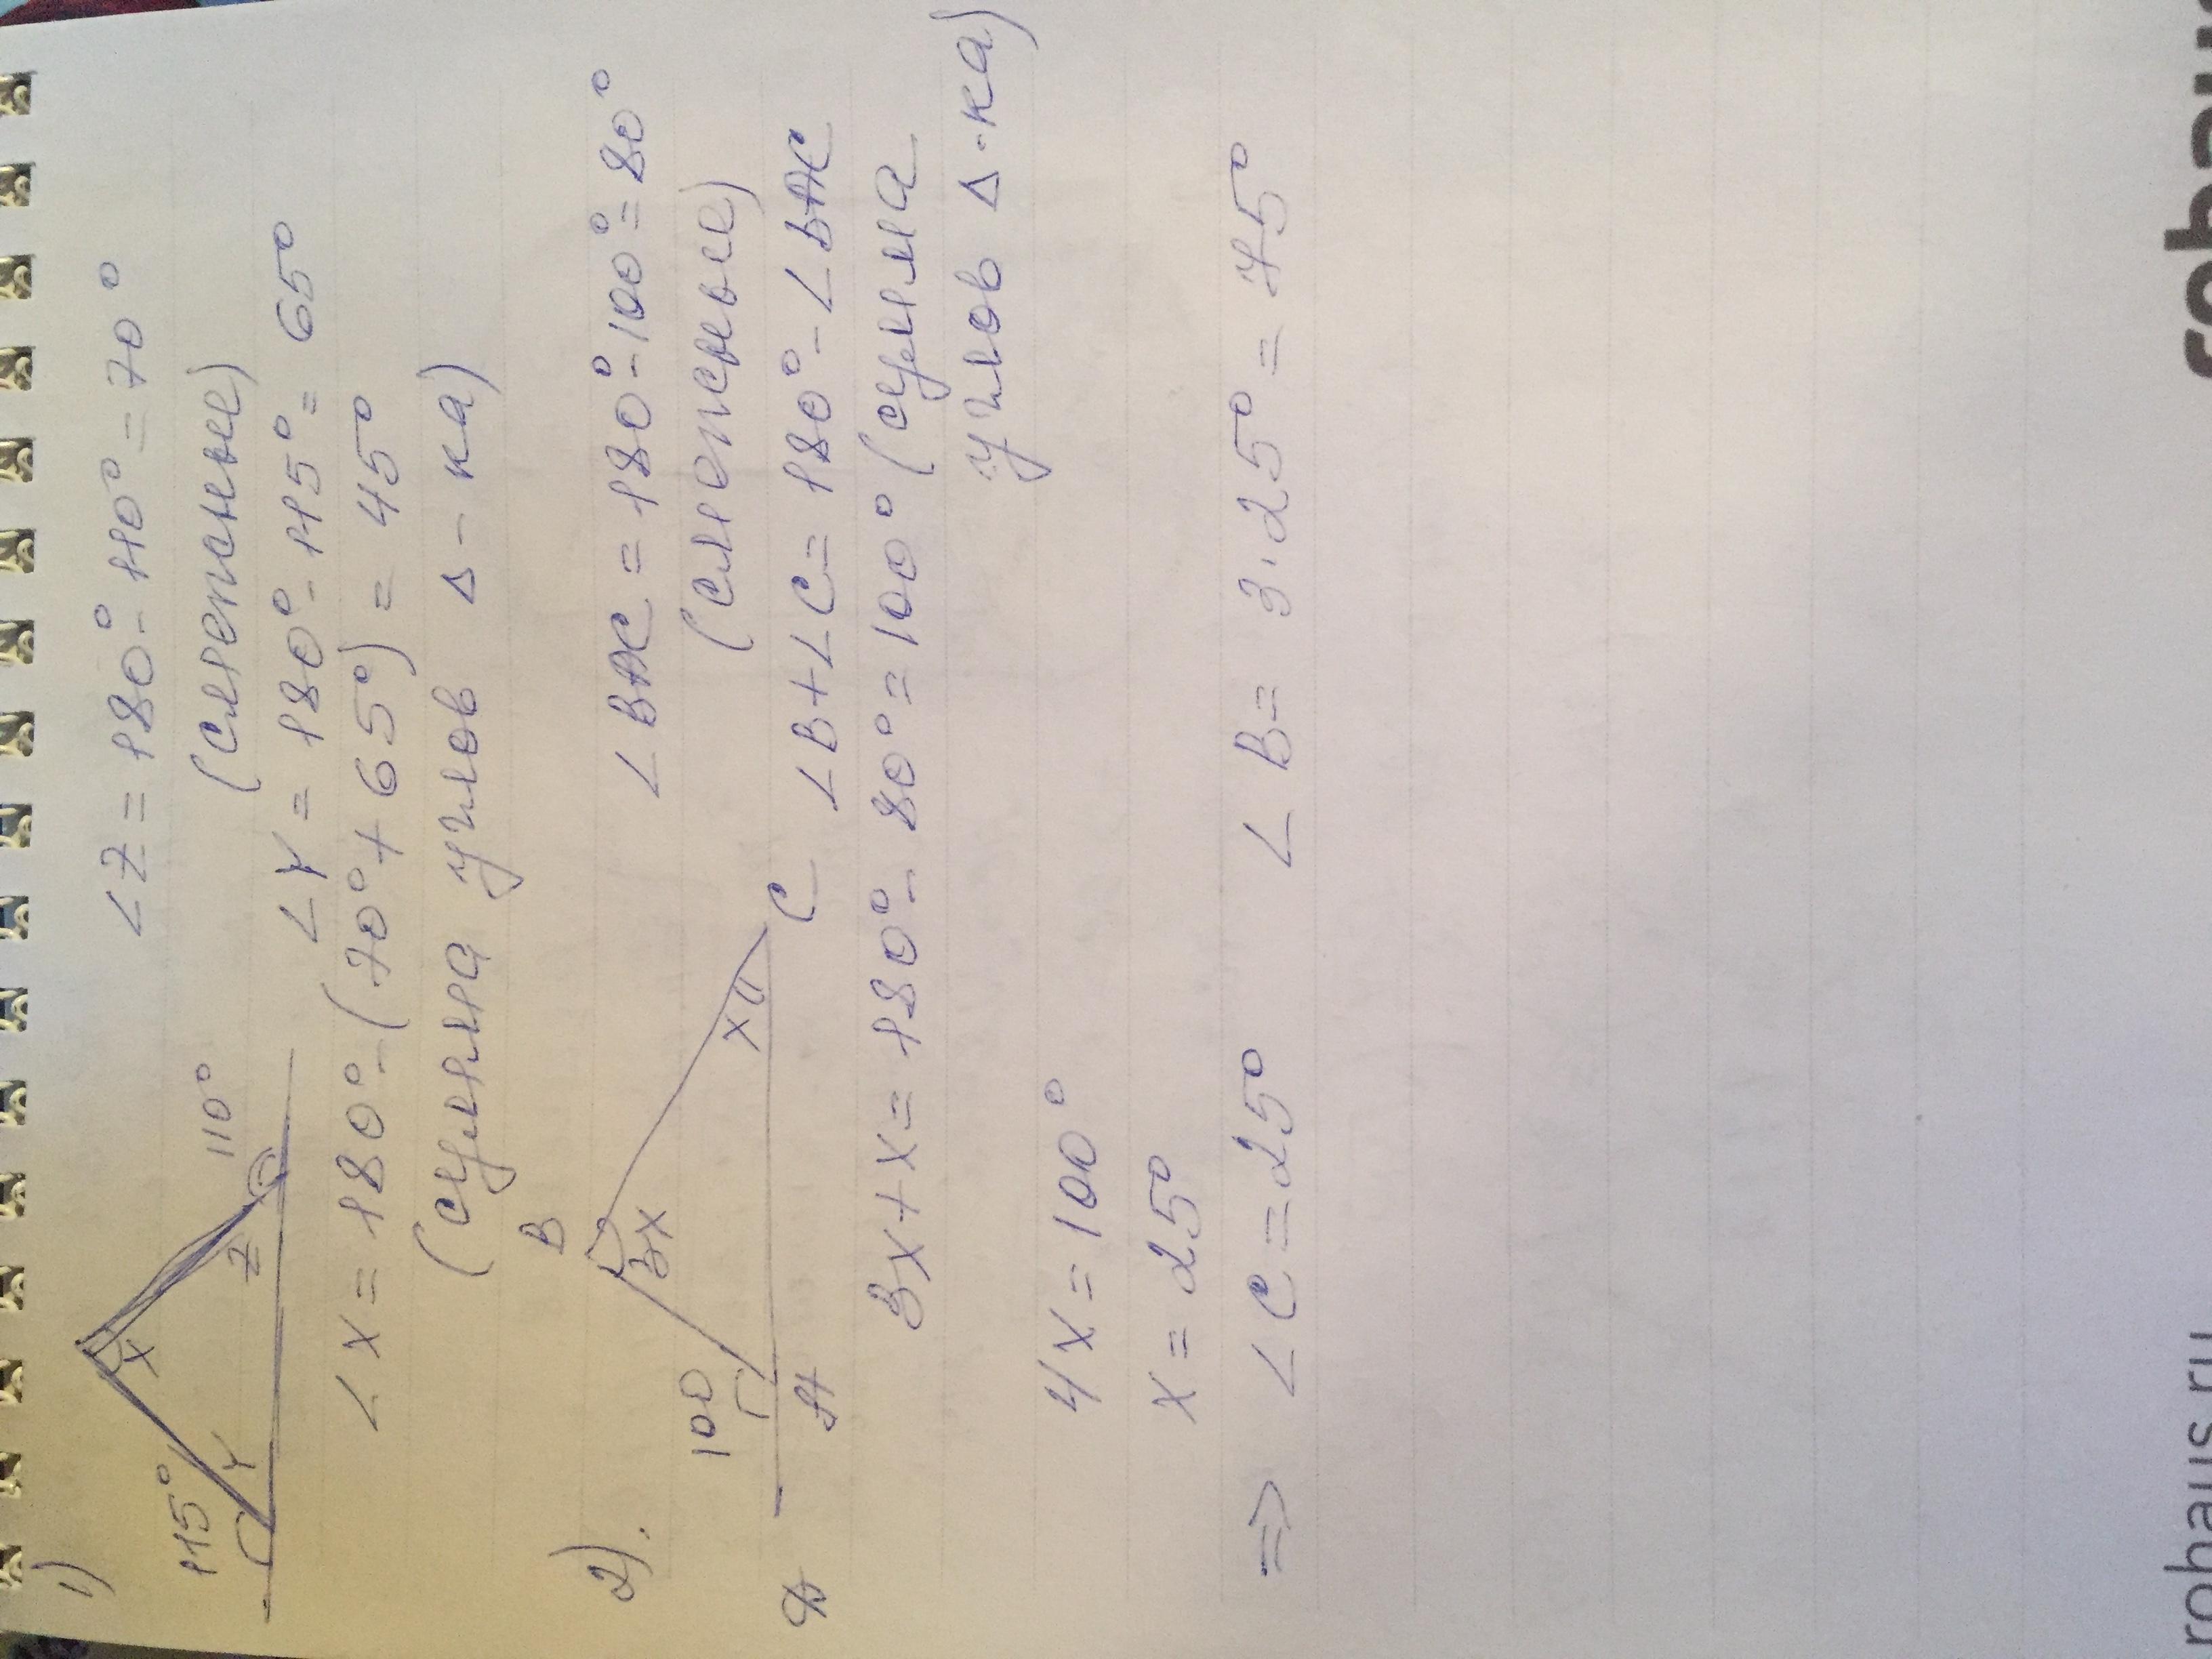 1)
∠Z = 180° - 110° = 70°
(смежные)
115° Y X Z 110°
∠Y = 180° - 115° = 65°
∠X = 180° - (70° + 65°) = 45°
(сумма углов Δ-ка)
2).
∠BAC = 180° - 100° = 80°
(смежные)
B
100 3X X C
A
∠B+∠C = 180° - ∠BAC
3X + X = 180° - 80° = 100° (сумма
углов Δ-ка)
4X = 100°
X = 25°
=> ∠C = 25° ∠B = 3·25° = 75°
rohaus.ru